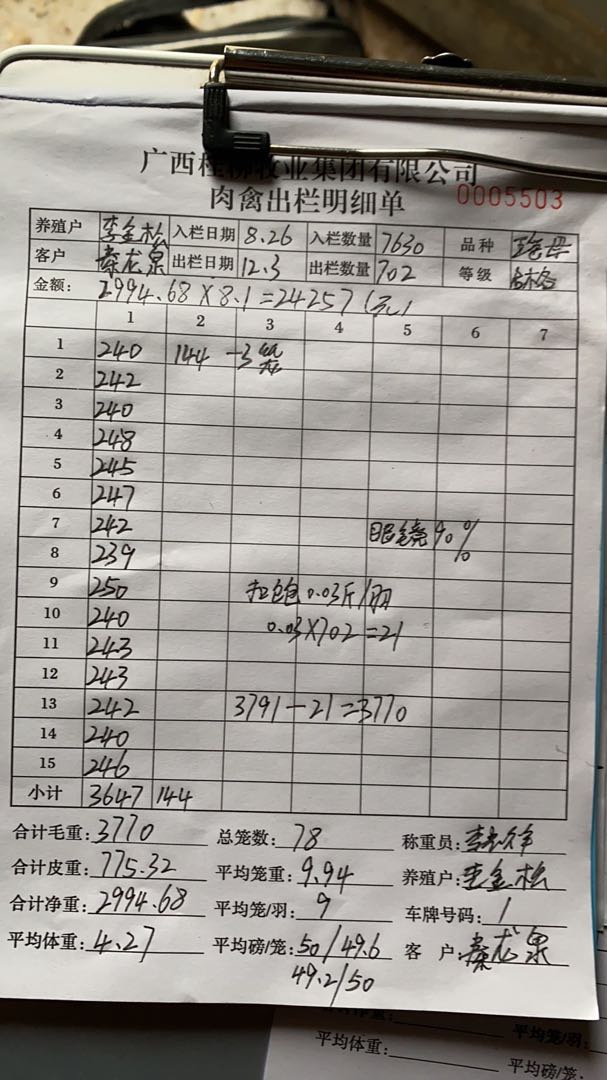 广西桂柳牧业集团有限公司
肉禽出栏明细单 0005503
养殖户 李金松 入栏日期 8.26 入栏数量 7630 品种
客户 秦龙泉 出栏日期 12.3 出栏数量 702 等级 合格
金额: 2994.68×8.1=24257(元)
1 2 3 4 5 6 7
1 240 144 -3笼
2 242
3 240
4 248
5 245
6 247
7 242 眼绕90%
8 239
9 250 扣饱0.03斤/羽
10 240 0.03×702=21
11 243
12 243
13 242 3791-21=3770
14 240
15 246
小计 3647 144
合计毛重: 3770 总笼数: 78 称重员:
合计皮重: 775.32 平均笼重: 9.94 养殖户: 李金松
合计净重: 2994.68 平均笼/羽: 9 车牌号码: 1
平均体重: 4.27 平均磅/笼: 50/49.6 客户: 秦龙泉
49.2/50
平均体重: 平均笼/羽:
平均磅/笼: